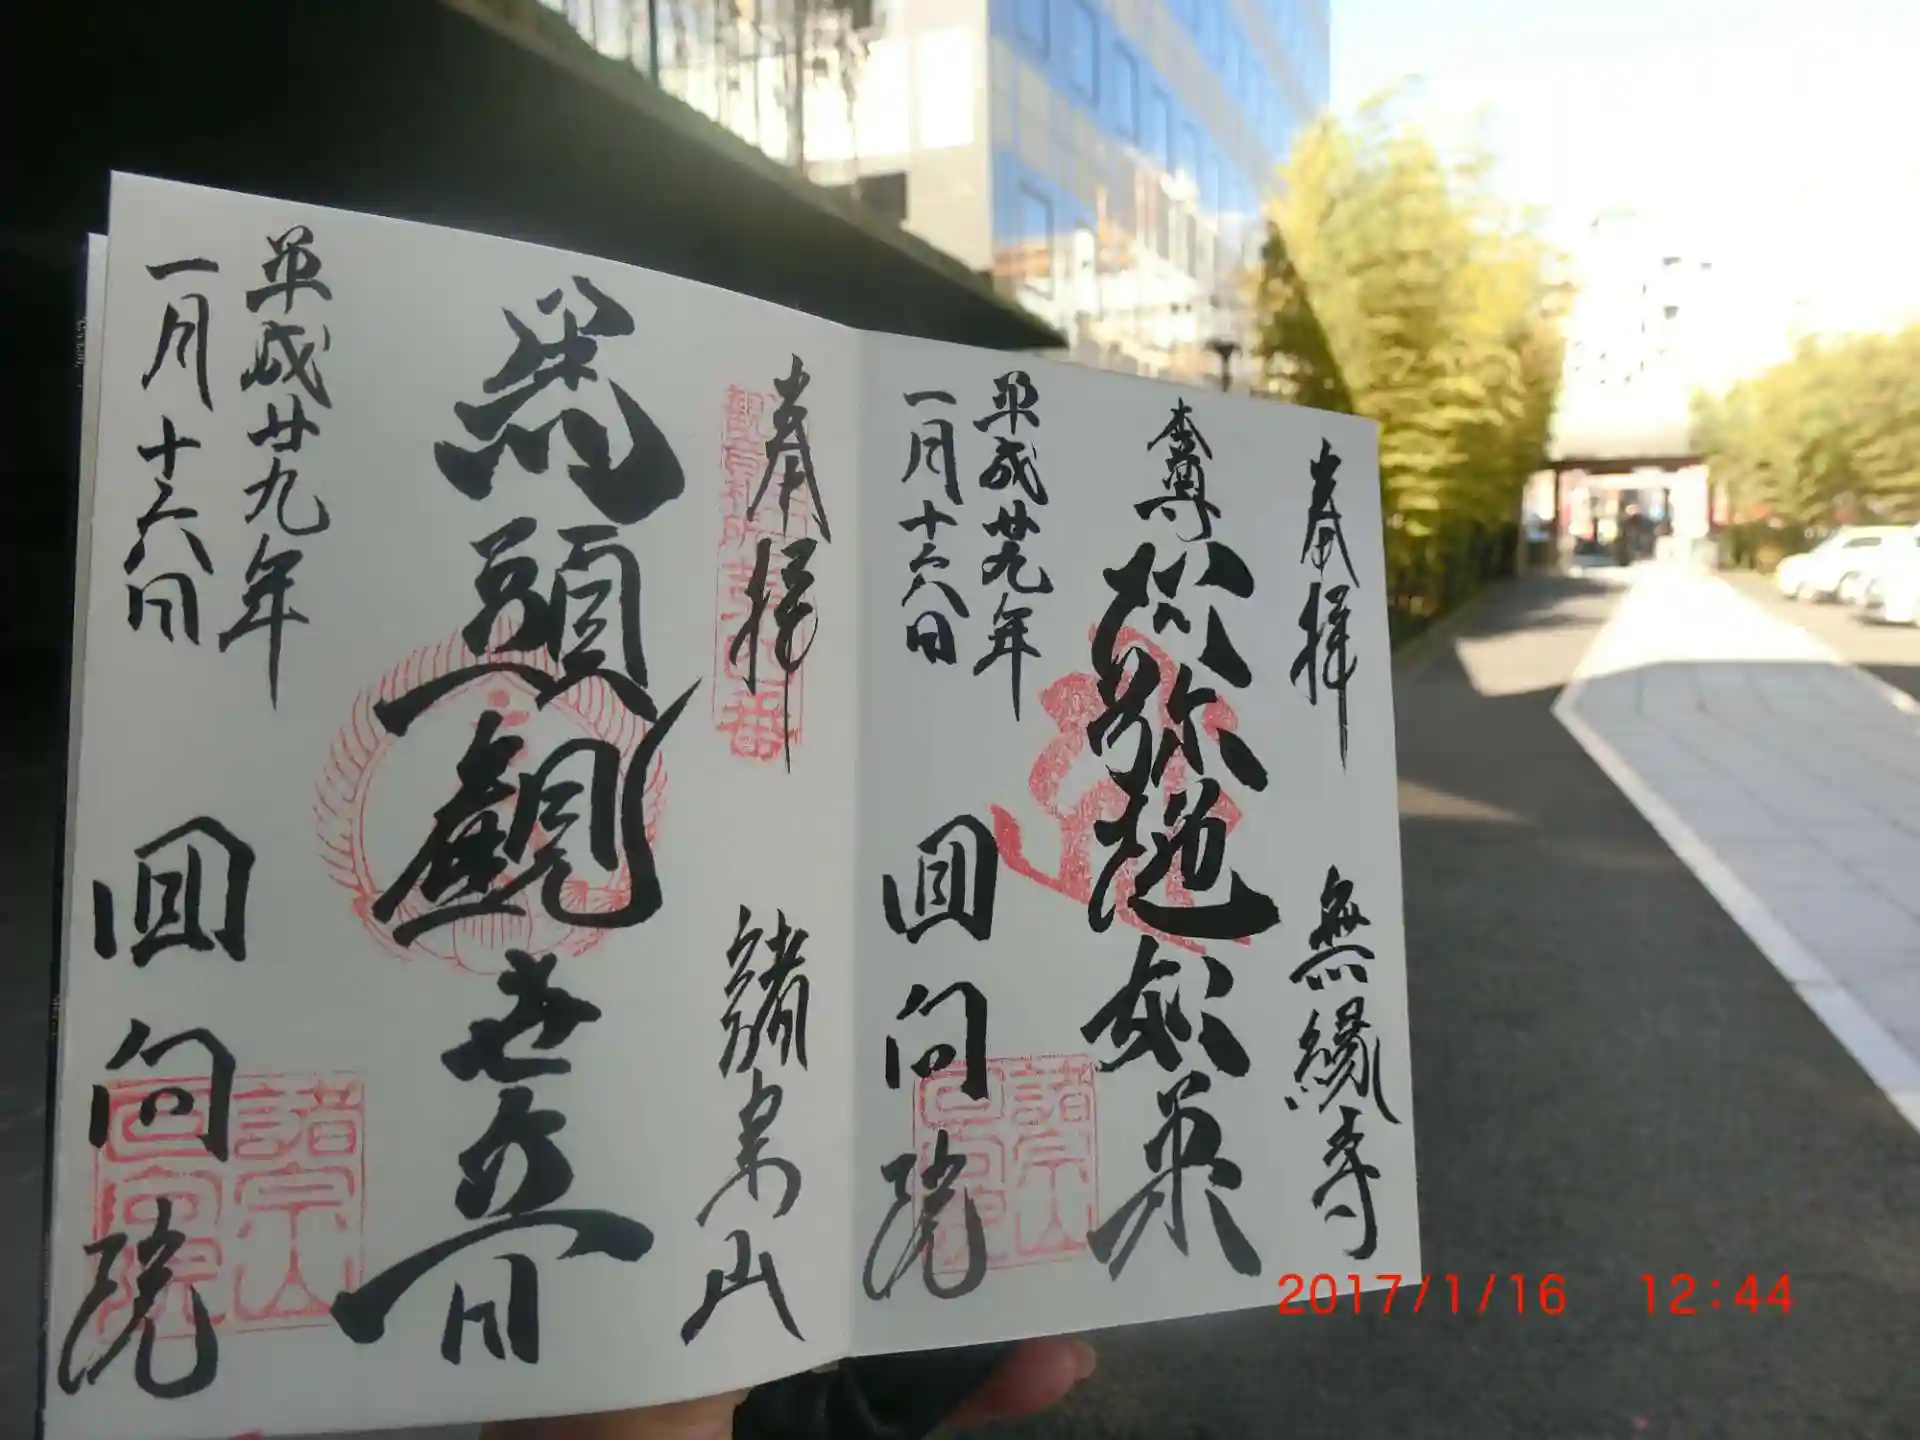 奉拝
無縁寺
本尊
阿弥陀如来
平成廿九年
一月十六日
回向院
諸宗山
奉拝
諸宗山
馬頭観世音
平成廿九年
一月十六日
回向院
諸宗山
回向院
2017/1/16 12:44